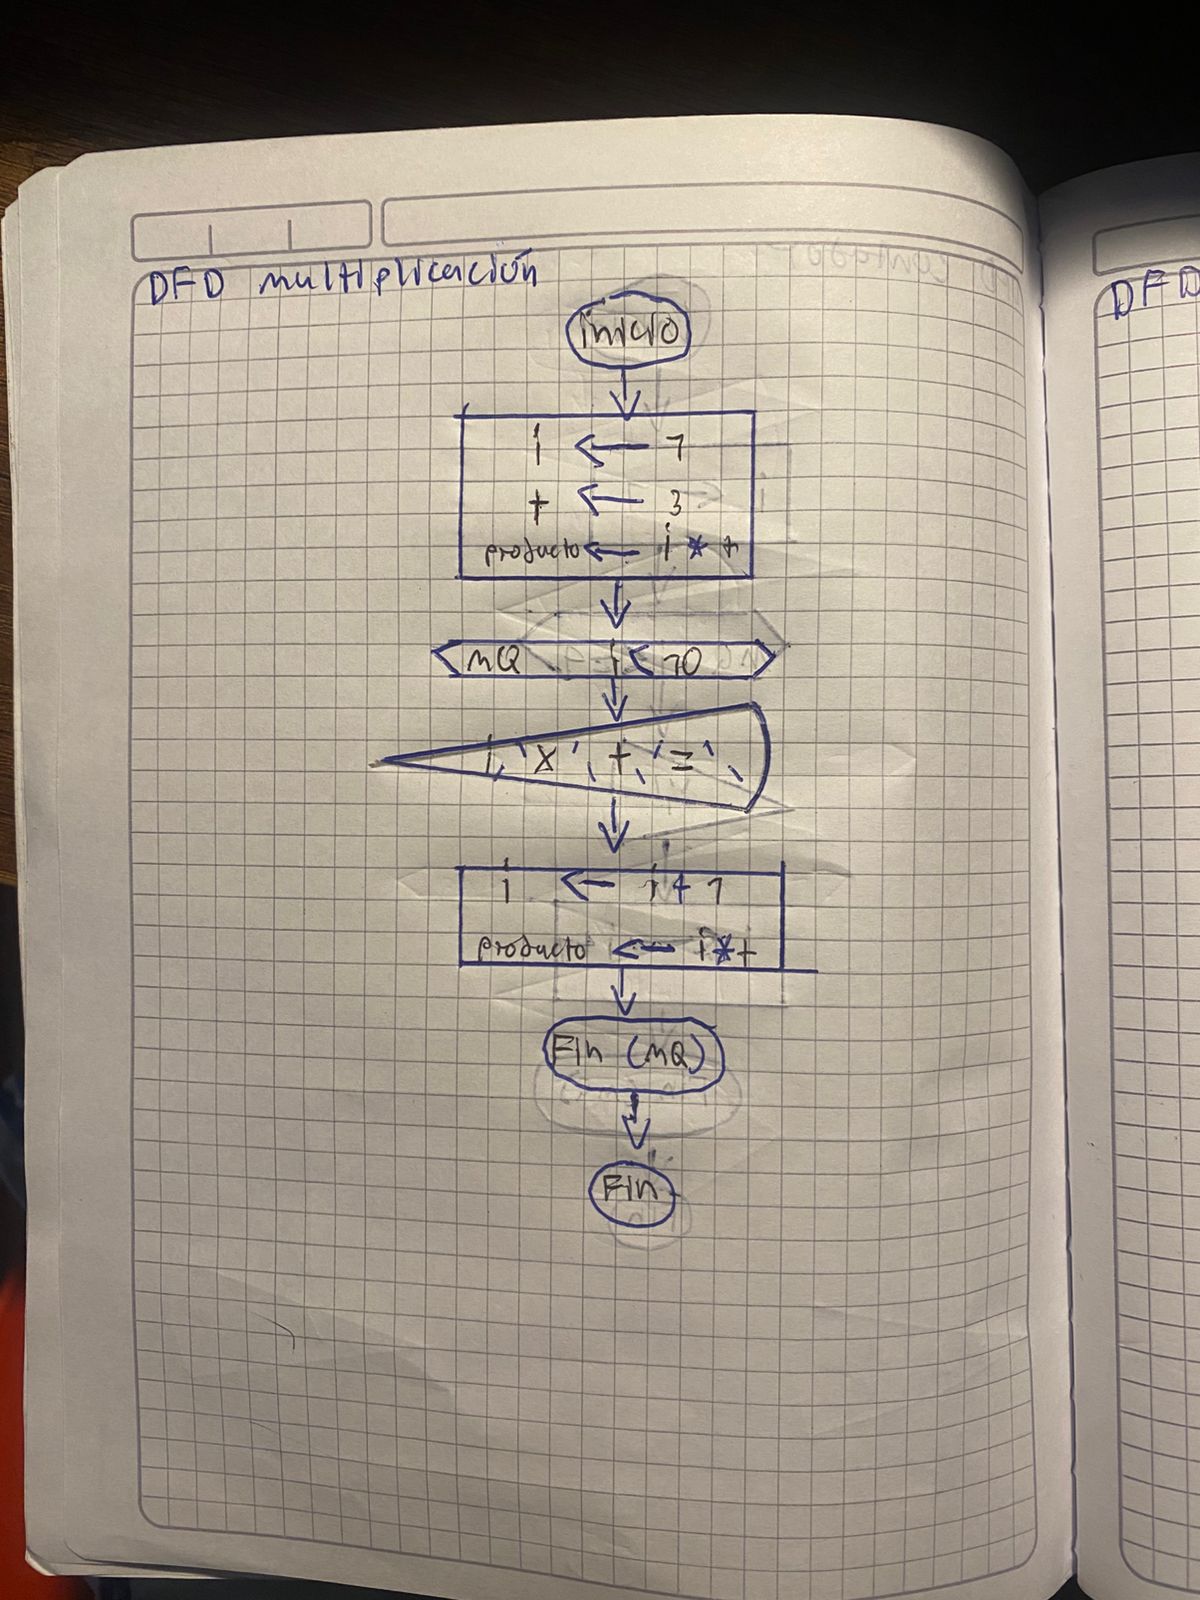 DFD multiplicación
DFD
inicio
i ← 1
t ← 3
producto ← i * t
MQ i < 10
i, 'x', t, '=',
i ← i + 1
producto ← i * t
Fin (MQ)
Fin